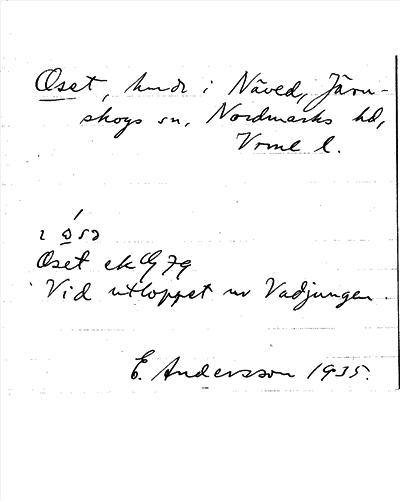 Oset, hmdr i Näved, Järn-
skogs sn, Nordmarks hd,
Vrml l.
Oset ek 79
Vid utloppet ur Vadjungen.
E. Andersson 1935.